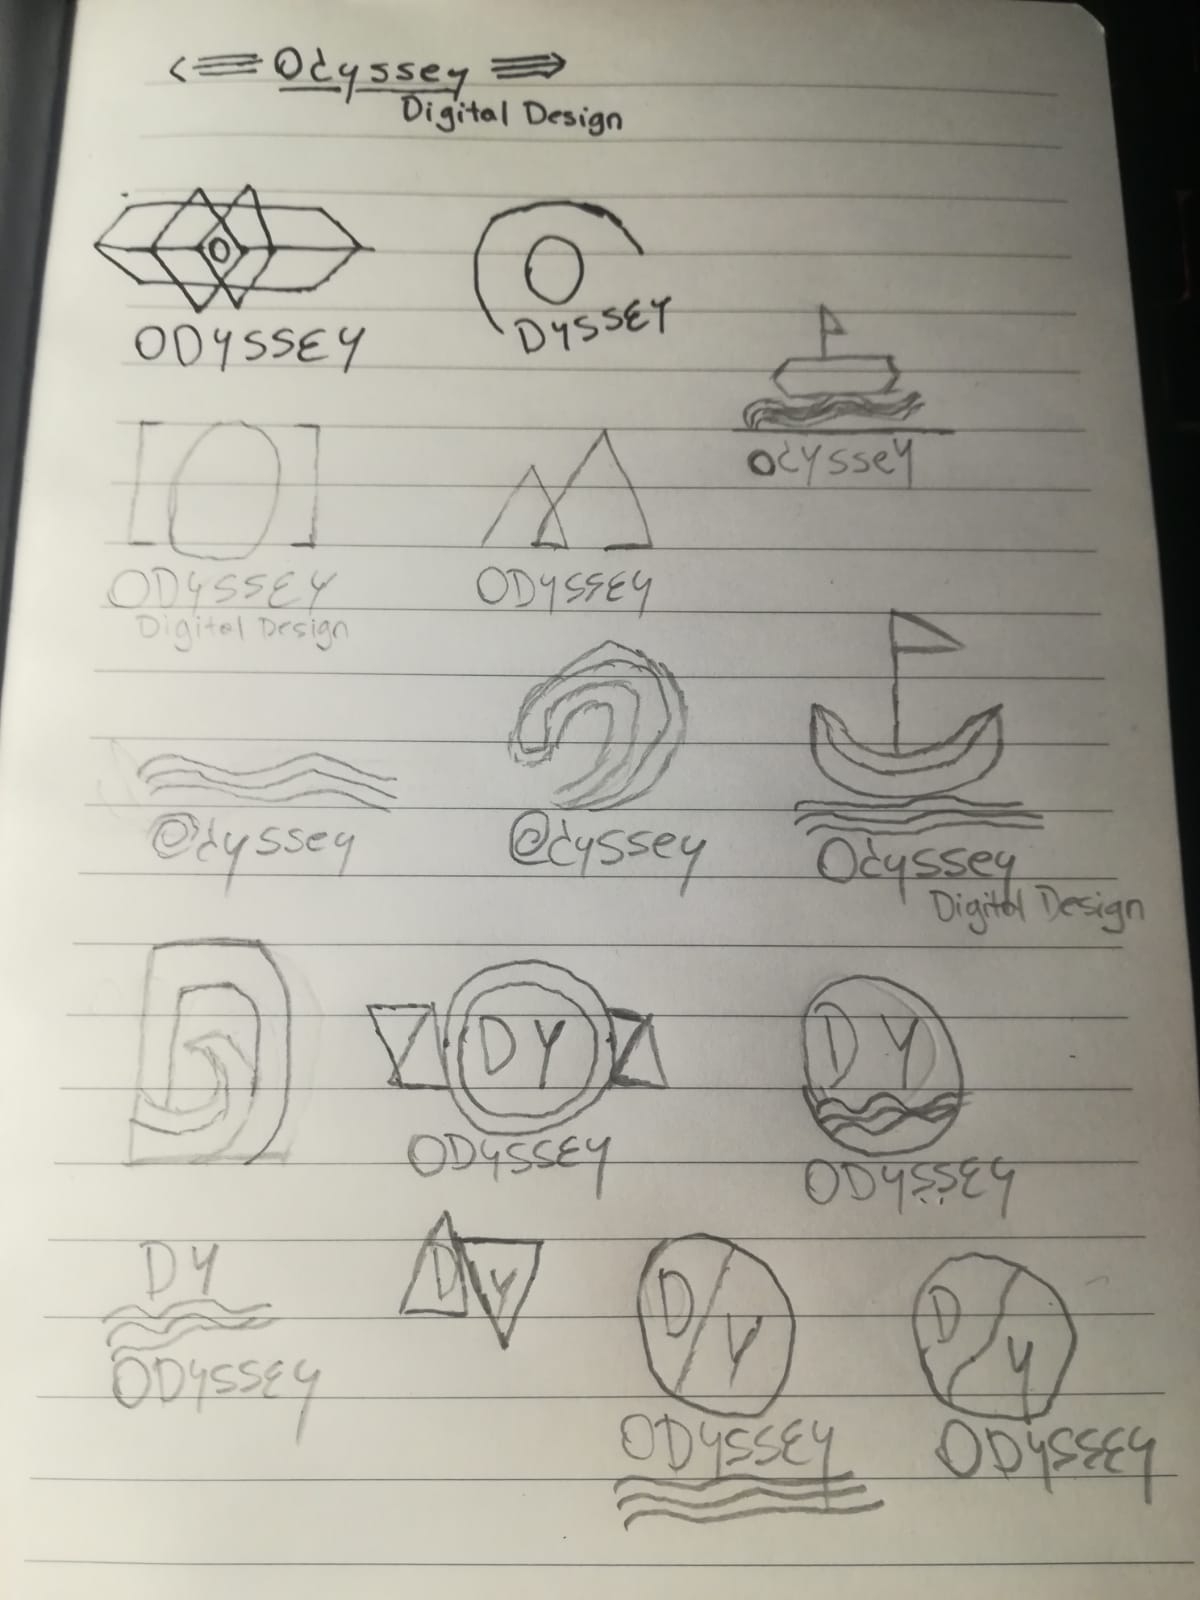 Odyssey
Digital Design
O
ODYSSEY
O
DYSSEY
Odyssey
O
ODYSSEY
Digital Design
ODYSSEY
Odyssey
Odyssey
Odyssey
Digital Design
D
DY
ODYSSEY
DY
ODYSSEY
DY
ODYSSEY
DY
D/Y
ODYSSEY
D/Y
ODYSSEY